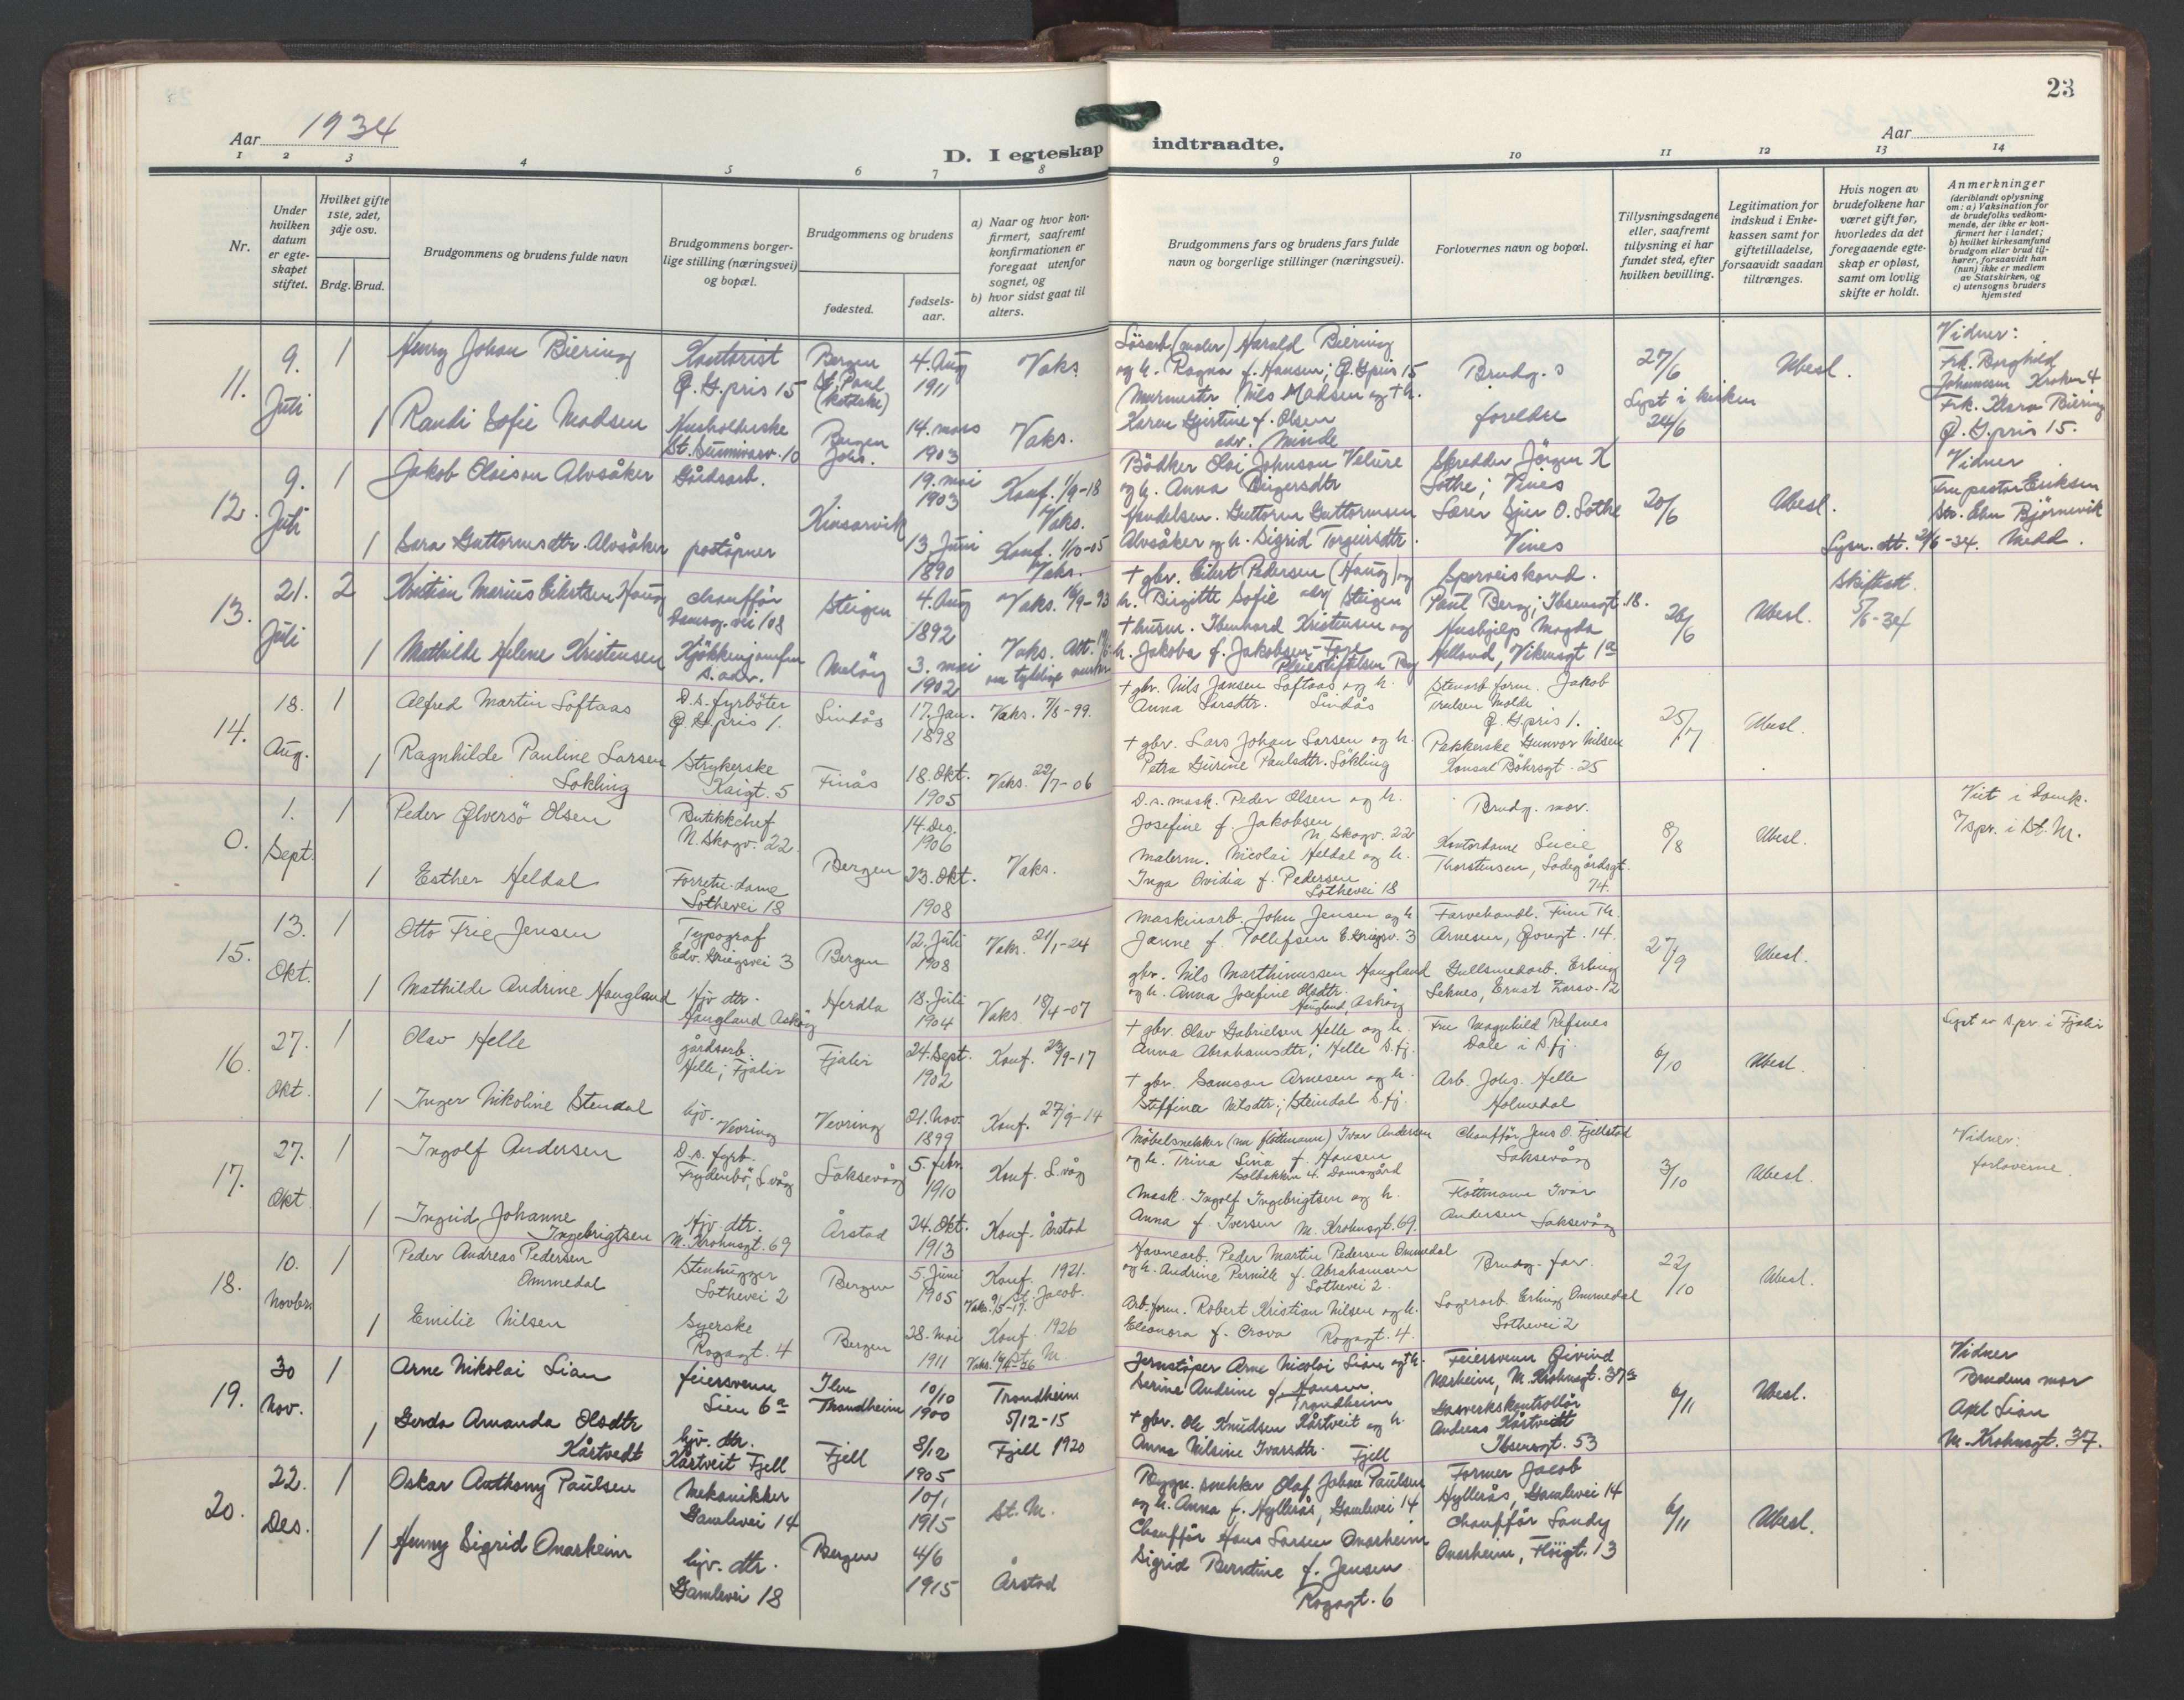 23
Aar 1934
Aar
D. I egteskap indtraadte.
1 2 3 4 5 6 7 8 9 10 11 12 13 14
Nr.
Under hvilken datum er egteskapet stiftet.
Hvilket gifte 1ste, 2det, 3dje osv.
Brdg. Brud.
Brudgommens og brudens fulde navn
Brudgommens borgerlige stilling (næringsvei) og bopæl.
Brudgommens og brudens
fødested.
fødselsaar.
a) Naar og hvor konfirmert, saafremt konfirmationen er foregaat utenfor sognet, og
b) hvor sidst gaat til alters.
Brudgommens fars og brudens fars fulde navn og borgerlige stillinger (næringsvei).
Forlovernes navn og bopæl.
Tillysningsdagene eller, saafremt tillysning ei har fundet sted, efter hvilken bevilling.
Legitimation for indskud i Enkekassen samt for giftetilladelse, forsaavidt saadan tiltrænges.
Hvis nogen av brudefolkene har været gift før, hvorledes da det foregaaende egteskap er opløst, samt om lovlig skifte er holdt.
Anmerkninger (deriblandt oplysning om: a) Vaksination for de brudefolks vedkommende, der ikke er konfirmert her i landet; b) hvilket kirkesamfund brudgom eller brud tilhører, forsaavidt han (hun) ikke er medlem av Statskirken, og c) utensogns bruders hjemsted
11. 9. Juli
1 Henry Johan Biering
Kontorist
Q. G. pris 15
Bergen
St. Paul
(katolske)
4. Aug
1911
Vaks.
Harald Biering
og h. Ragna f. Hansen; Q. G. pris 15
Brudg.s
foreldre
27/6
Lyst i kirken
24/6
Ubesl.
Vidner:
Frk. Borghild
Johannesen Kroken 4
Frk. Klara Biering
Q. G. pris 15.
1 Randi Sofie Madsen
Husholderske
St. Sunnivasv. 10
Bergen
Johs.
14. mars
1903
Vaks.
Murmester Nils Madsen og † h.
Karen Gjertine f. Olsen
adr. Minde
12. 9. Juli
1 Jakob Olaison Alvsåker
Gårdsarb.
Kinsarvik
19. mai
1903
Konf. 1/9-18
Vaks.
Bödker Olai Johnson Velure
og h. Anna Beigersdtr
Skredder Jörgen K
Lothe; Vines
20/6
Ubesl.
Vidner
Fru pastor Eriksen
Bjørnevik
1 Sara Guttormsdtr. Alvsåker
poståpner
13. Juni
1890
Konf. 1/10-05
Vaks.
Handelsm. Guttorm Guttormsen
Alvsåker og h. Sigrid Torgeirsdtr.
Lærer Sjur O. Lothe
Vines
Lysn. att. 29/6-34. Medd.
13. 21. Juli
2 Kristian Marius Eilertsen Haug
chaufför
Damsg. vei 108
Steigen
4. Aug
1892
Vaks. 16/9-93
† gbr. Eilert Pedersen (Haug) og
h. Birgitte Sofie adr. Steigen
Sporveiskond.
Paul Berg; Ibsensgt. 18.
26/6
Ubesl.
Skifteatt.
5/6-34
1 Mathilde Helene Kristensen
Kjökkenjomfru
s. adr.
Meløy
3. mai
1902
Vaks. Att.
om tydelige merker
† husm. Ibenhard Kristensen og
h. Jakoba f. Jakobsen-Fore
Pleiestiftelsen
Hushjelp Magda
Helland, Vikensgt 1a
14. 18. Aug.
1 Alfred Martin Loftaas
D.s. fyrböter
Q. G. pris 1.
Lindås
17. Jan.
1898
Vaks. 7/8-99.
† gbr. Nils Jansen Loftaas og h.
Anna Larsdtr. Lindås
Stenarb. form. Jakob
Trulsen Molde
Q. G. pris 1.
25/7
Ubesl.
1 Ragnhilde Pauline Larsen
Lokling
Strykerske
Kaigt. 5
Finås
18. Okt.
1905
Vaks. 22/7-06
† gbr. Lars Johan Larsen og h.
Petra Gurine Paulsdtr. Lökling
Pakkerske Gunvor Nilsen
Konsul Böhrsgt. 25
0. 1. Sept.
1 Peder Ølversö Olsen
Butikkchef
N. Skogv. 22
Bergen
14. Des.
1906
D.s. mask. Peder Olsen og h.
Josefine f. Jakobsen
N. Skogv. 22
Brudg. mor.
8/8
Ubesl.
Viet i Domk.
7/spr. i St. M.
1 Esther Heldal
Forretn. dame
Lothevei 18
23. Okt.
1908
Vaks.
Malerm. Nicolai Heldal og h.
Inga Ovidia f. Pedersen
Lothevei 18
Kontordame Lucie
Thorstensen, Ladegårdsgt.
74.
15. 13. Okt.
1 Otto Frie Jensen
Typograf
Edv. Griegsvei 3
Bergen
12. Juli
1908
Vaks. 21/1-24
Maskinarb. John Jensen og h
Janne f. Tollefsen E. Griegsv. 3
Farvehandl. Finn Th.
Arnesen, 14.
27/9
Ubesl.
1 Mathilde Andrine Haugland
Hjv dtr.
Haugland Askøy
Herdla
18. Juli
1904
Vaks. 18/4-07
gbr. Nils Marthinussen Haugland
og h. Anna Josefine Olsdtr.
Haugland, Askøy
Gullsmedarb. Erling
Seknes, Ernst
16. 27. Okt.
1 Olav Helle
gårdsarb.
Helle, Fjaler
Fjaler
24. Sept.
1902
Konf. 23/9-17
† gbr. Olav Gabrielsen Helle og h.
Anna Abrahamsdtr; Helle S.fj.
Fru Magnhild Refsnes
Dale i S.fj.
6/10
Ubesl.
Lyst av s.pr. i Fjaler
1 Inger Nikoline Stendal
hjv. Vevring
Vevring
21. Nov.
1899
Konf. 27/9-14
† gbr. Samson Arnesen og h.
Steffina Nilsdtr; Steindal S.fj.
Arb. Johs. Helle
Holmedal
17. 27. Okt
1 Ingolf Andersen
D.s. fyrb.
Frydenbö, L.våg
Laksevåg
5. febr.
1910
Konf. L.våg
Möbelsnekker (nu flöttmann) Ivar Andersen
og h. Trina Lina f. Hansen
Solbakken 4. Damsgård
Chaufför Jens O. Fjellstad
Laksevåg
3/10
Ubesl.
Vidner:
forloverne.
1 Ingrid Johanne
Ingebrigtsen
Hjv. dtr.
M. Krohnsgt. 69
Årstad
24. Okt.
1913
Konf. Årstad
Mask. Ingolf Ingebrigtsen og h.
Anna f. Iversen M. Krohnsgt. 69.
Flöttmann Ivar
Andersen Laksevåg
18. 10. Novbr.
1 Peder Andreas Pedersen
Ommedal
Stenhugger
Lothevei 2
Bergen
5. Juni
1905
Konf. 1921.
St. Jacob.
Vaks. 9/5-17.
Havnearb. Peder Martin Pedersen Ommedal
og h. Andrine Pernille f. Abrahamsen
Lothevei 2.
Brudg. far.
22/10
Ubesl.
1 Emilie Nilsen
Syerske
Rogagt. 4
Bergen
28. Mai
1911
Konf. 1926
St. M.
Arb. form. Robert Kristian Nilsen og h.
Eleonora f. Crova Rogagt. 4.
Lagerarb. Erling Ommedal
Lothevei 2
19. 30 Nov.
1 Arne Nikolai Lian
feiersvenn
Lien 6a
Ilen
Trondheim
10/10
1900
Trondheim
5/12-15
Jernstöper Arne Nicolai Lian og † h.
Serine Andrine f. Hansen
Trondheim
Feiersvenn Øivind
Nesheim, M. Krohnsgt. 37a
6/11
Ubesl.
Vidner
Brudens mor
Axel Lian
M. Krohnsgt. 37.
1 Gerda Amanda Olsdtr
Kårtvedt
hjv. dtr.
Kårtveit Fjell
Fjell
8/12
1905
Fjell 1920
† gbr. Ole Knudsen Kårtveit og h.
Anna Nilsine Ivarsdtr. Fjell
Gasverkskontrollör
Andreas Kårtveidt
Ibsensgt. 53
20. 22. Des.
1 Oskar Anthony Paulsen
Mekanikker
Gamlevei 14
Bergen
10/1
1915
St. M.
Bygn. snekker Olaf Johan Paulsen
og h. Anna f. Hyllerås, Gamlevei 14
Former Jacob
Hyllerås, Gamlevei 14
6/11
Ubesl.
1 Henny Sigrid Onarheim
hjv. dtr.
Gamlevei 18
4/6
1915
Årstad
Chauffør Hans Larsen Onarheim
Sigrid Berntine f. Jensen
Rogagt. 6
Chauffør Sandy
Onarheim, Fløigt. 13